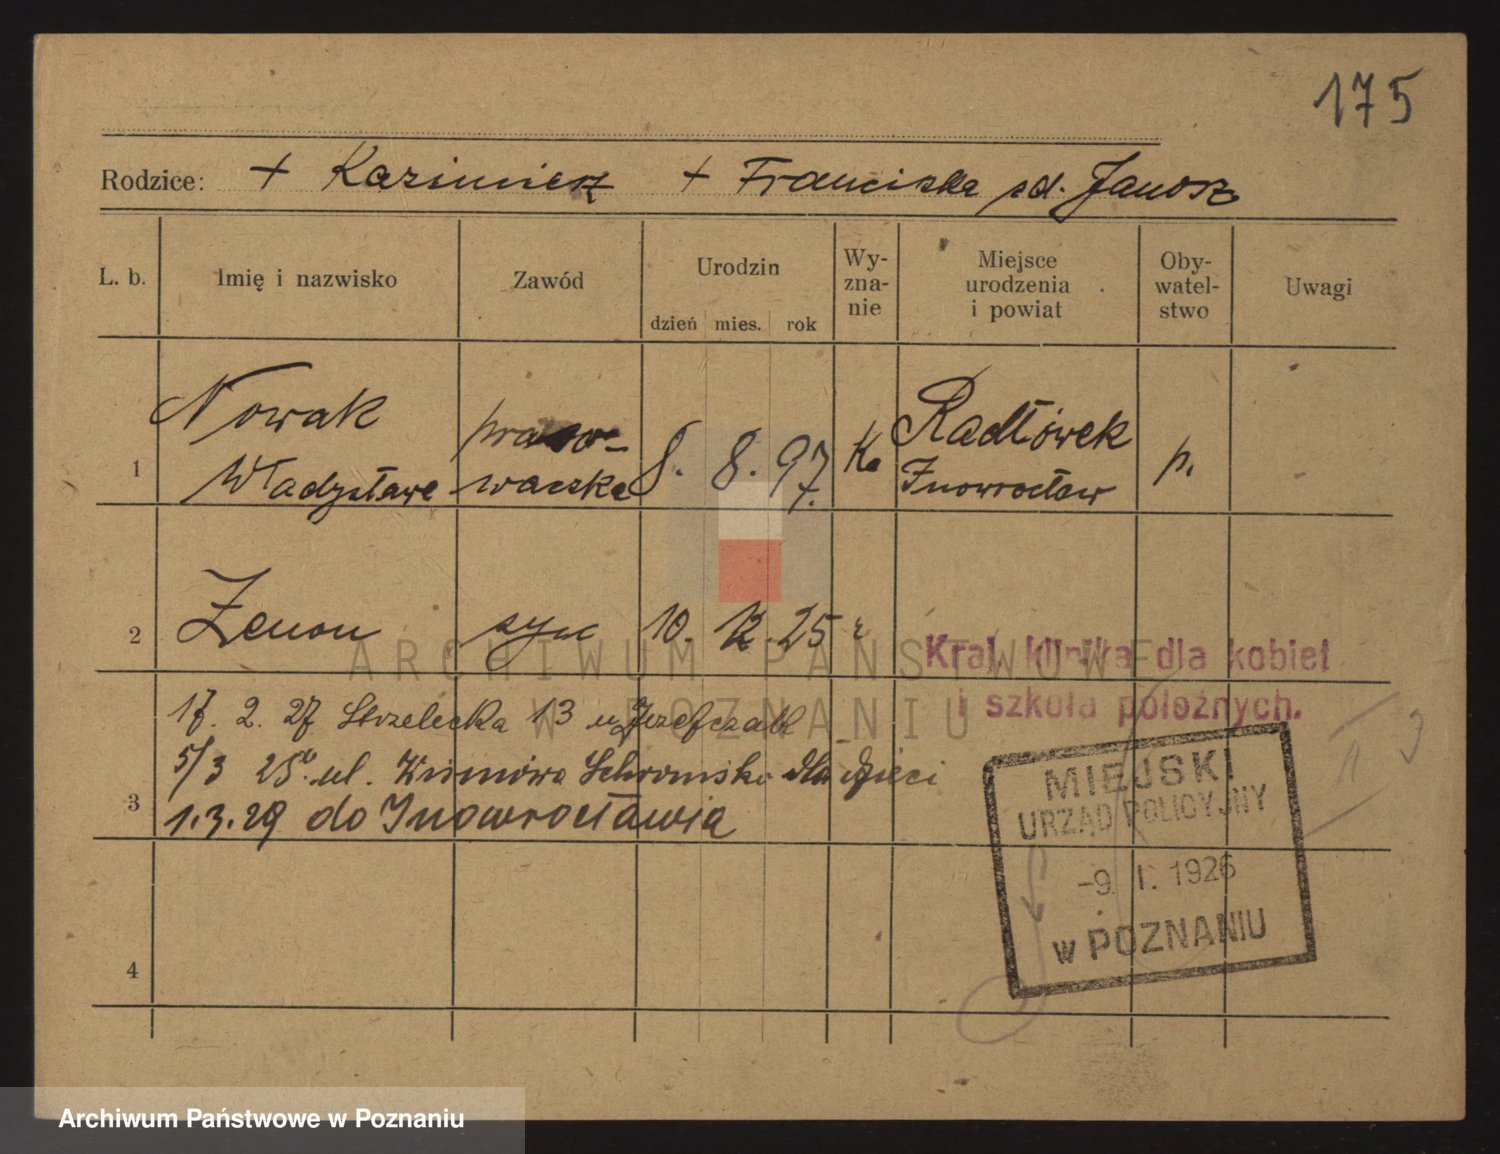 175
Rodzice: + Kazimierz + Franciszka zd. Janosz
L. b. Imię i nazwisko Zawód Urodzin dzień mies. rok Wy-zna-nie Miejsce urodzenia i powiat Oby-watel-stwo Uwagi
1 Nowak Władysława praso-waczka 8. 8. 97. Ka Radłówek Inowrocław p.
2 Zenon syn 10. 12. 25
Kraj. klinika dla kobiet
i szkoła położnych.
17. 2. 27 Strzelecka 13 u Józefczak
5/3 28 ul. Schronisko dla dzieci
3 1.3.29 do Inowrocławia
MIEJSKI
URZĄD POLICYJNY
-9. I. 1926
w POZNANIU
4
ARCHIWUM PAŃSTWOWE
W POZNANIU
Archiwum Państwowe w Poznaniu